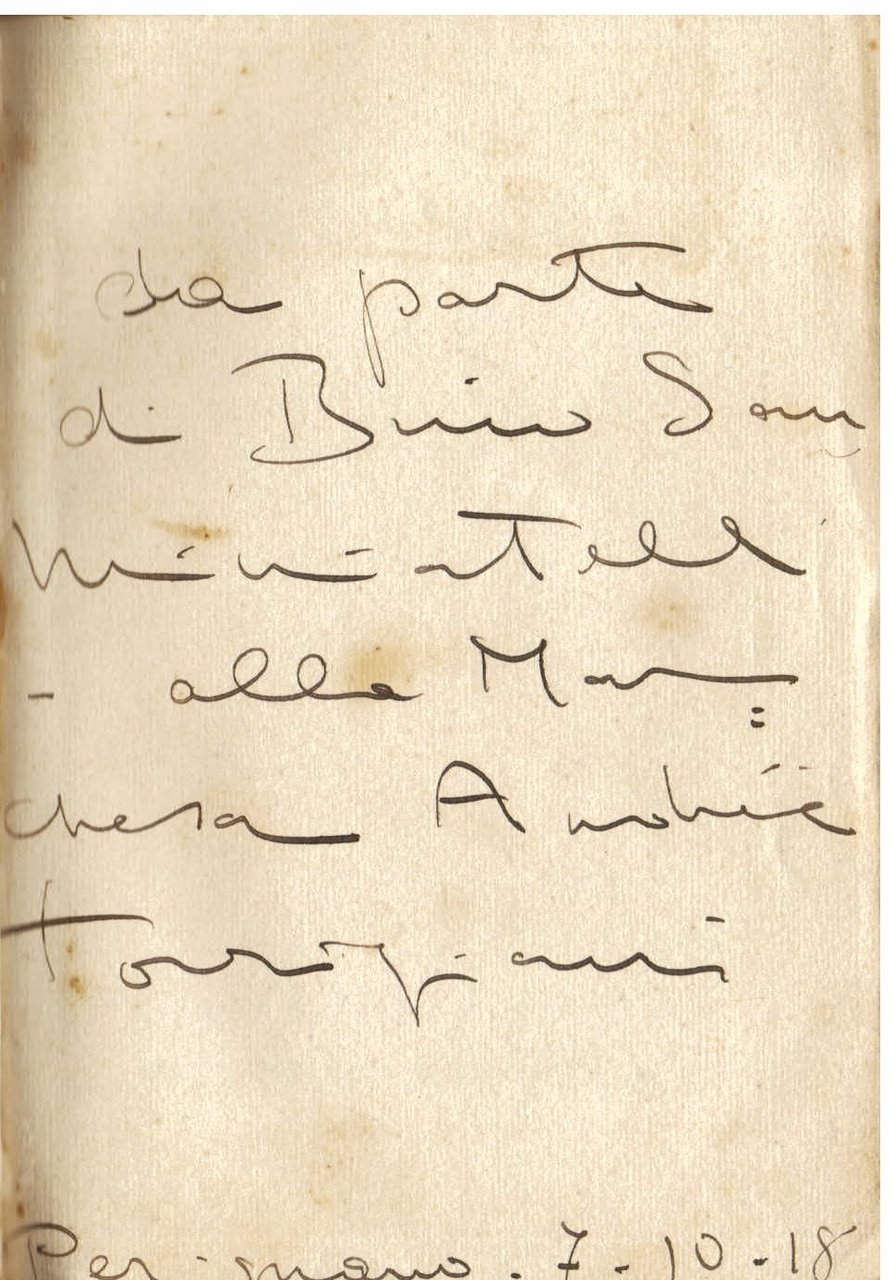 da parte
di Bino San
Miniatelli
- alla Mar=
chesa Andrée
Torrigiani
Perignano. 7-10-18